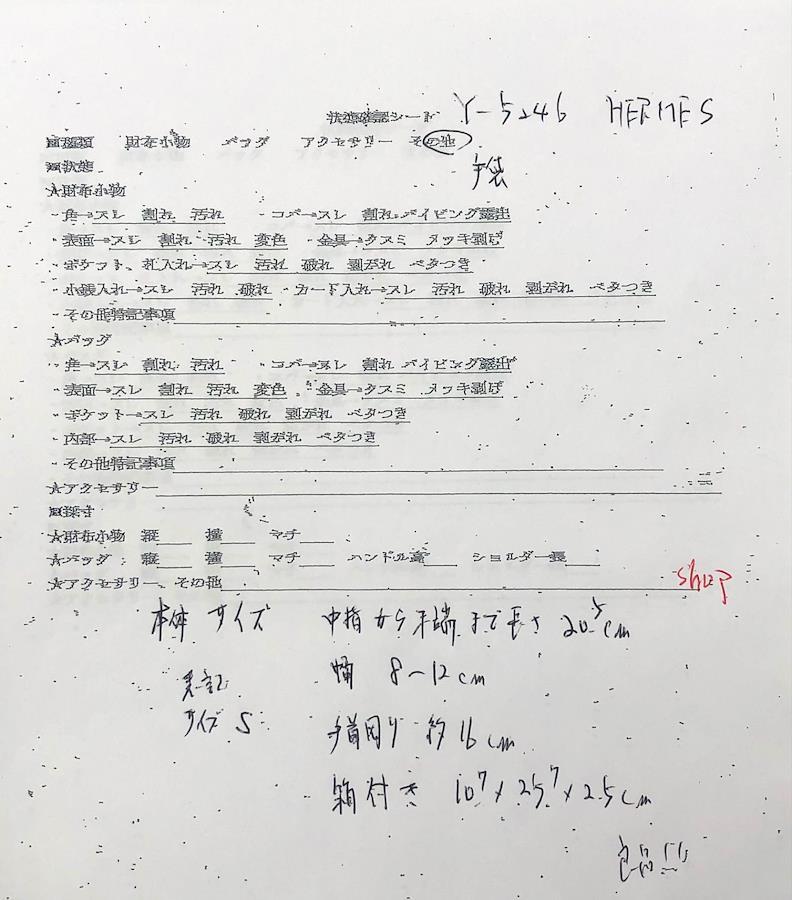 状態確認シート Y-5246 HERMES
■種類 財布小物 バッグ アクセサリー その他
手袋
■状態
★財布小物
・角→スレ 割れ 汚れ ・コバ→スレ 割れ パイピング露出
・表面→スレ 割れ 汚れ 変色 ・金具→クスミ メッキ剥げ
・ポケット、札入れ→スレ 汚れ 破れ 剥がれ ベタつき
・小銭入れ→スレ 汚れ 破れ ・カード入れ→スレ 汚れ 破れ 剥がれ ベタつき
・その他特記事項
★バッグ
・角→スレ 割れ 汚れ ・コバ→スレ 割れ パイピング露出
・表面→スレ 割れ 汚れ 変色 ・金具→クスミ メッキ剥げ
・ポケット→スレ 汚れ 破れ 剥がれ ベタつき
・内部→スレ 汚れ 破れ 剥がれ ベタつき
・その他特記事項
★アクセサリー
■採寸
★財布小物 縦 横 マチ
★バッグ 縦 横 マチ ハンドル高 ショルダー長
★アクセサリー、その他
本体サイズ 中指から末端まで長さ 20.5cm
幅 8~12cm
表記
サイズ S
手首回り 約16cm
箱付き 10.7×25.7×2.5cm
良品!!